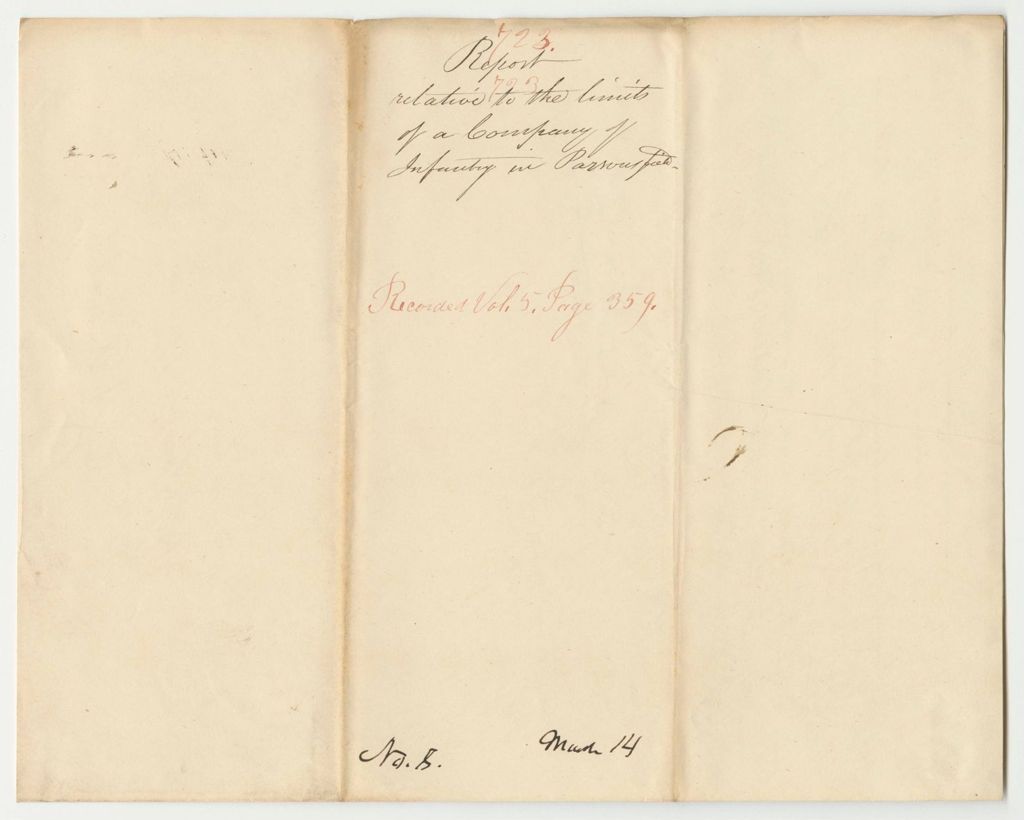 723.
Report
723
relative to the limits
of a Company of
Infantry in Parsonsfield.
Recorded Vol. 5. Page 359.
No. B. March 14